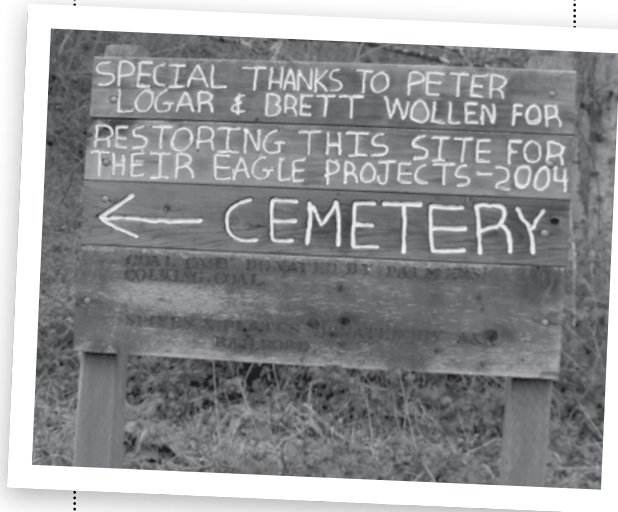 SPECIAL THANKS TO PETER
LOGAR & BRETT WOLLEN FOR
RESTORING THIS SITE FOR
THEIR EAGLE PROJECTS-2004
← CEMETERY
COAL DONATED BY
COAL